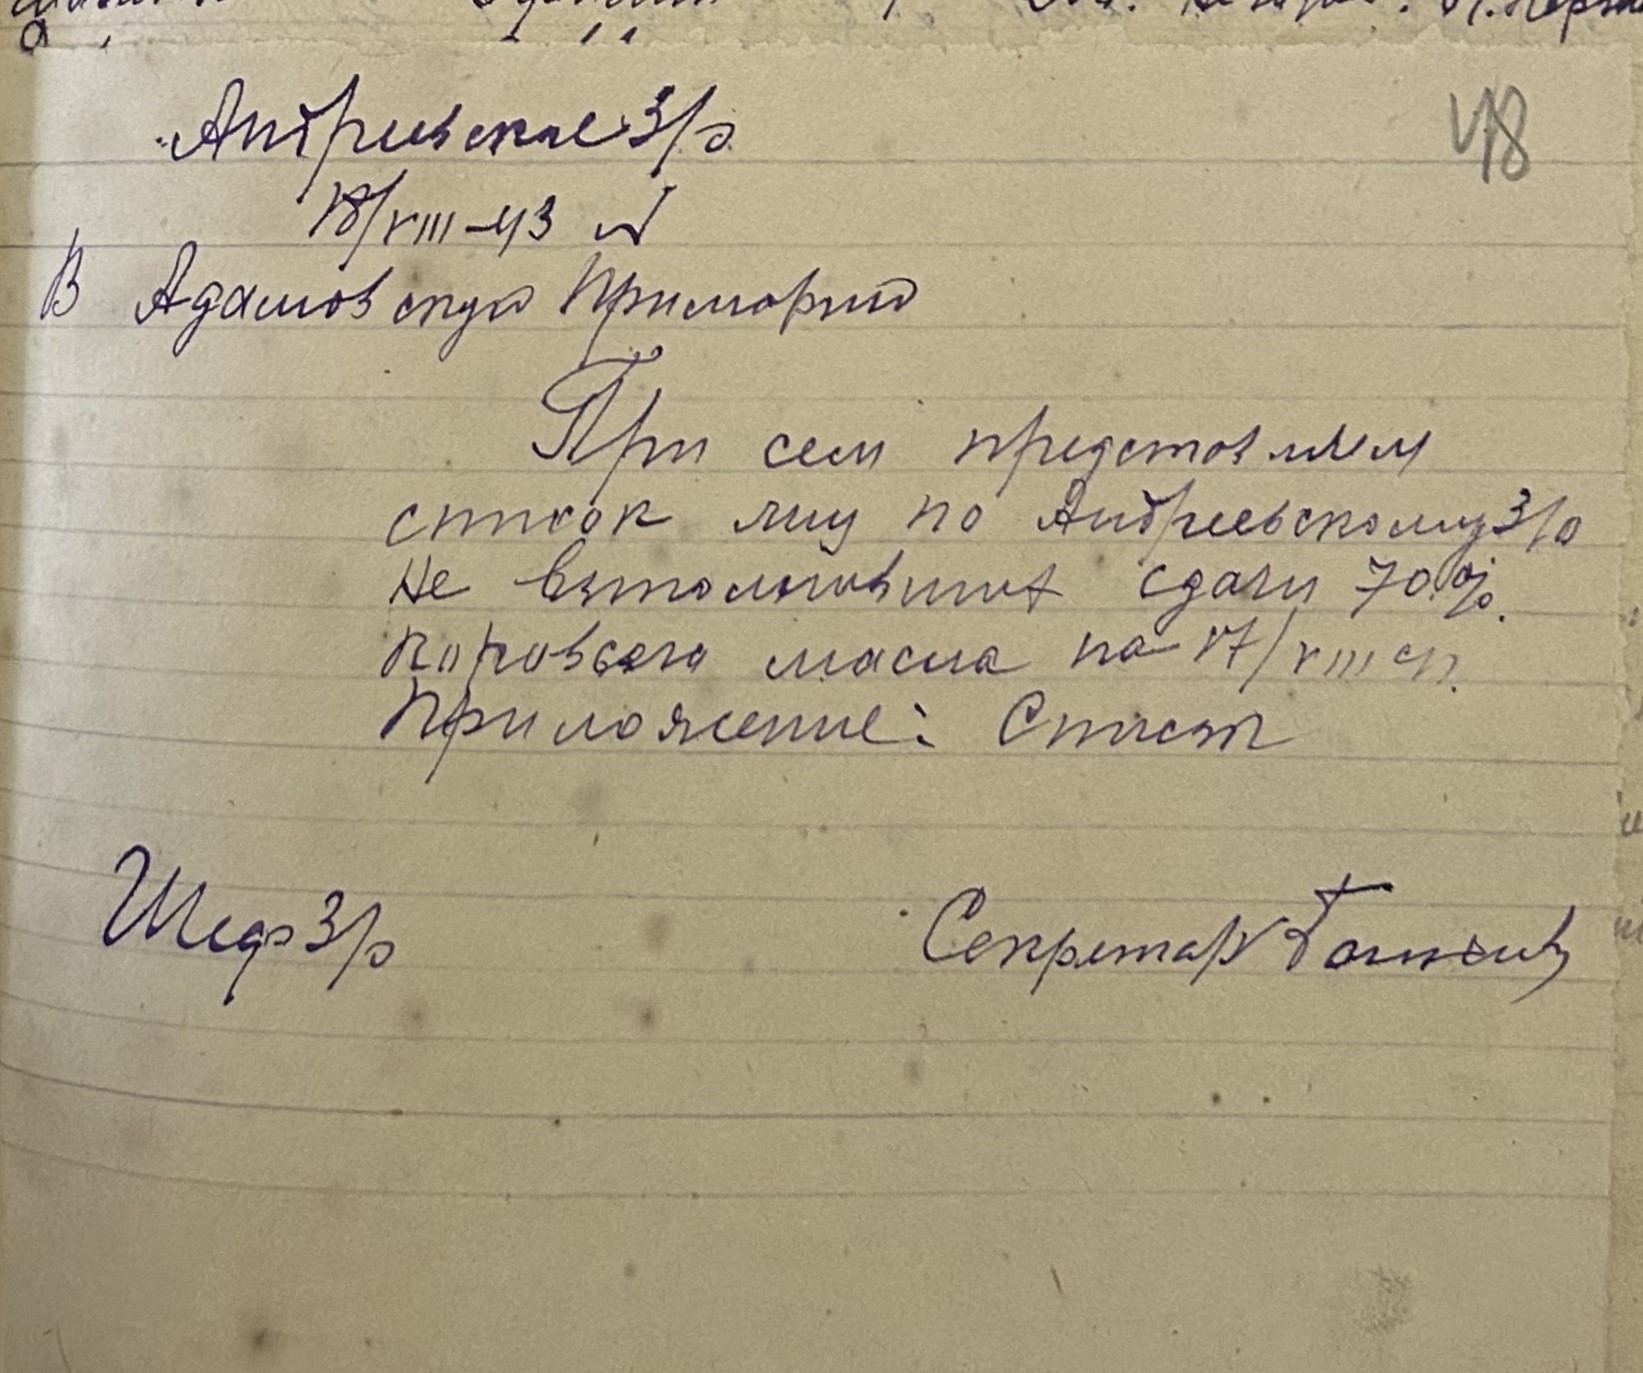 48
Андреевское З/р
18/VIII-43 N
В Адамовскую Примарию
При сем представляем
список лиц по Андреевскому З/р
не выполнивших сдачи 70%
коровьего масла на 17/VIII сг.
Приложение: Список
Шеф З/р
Секретарь